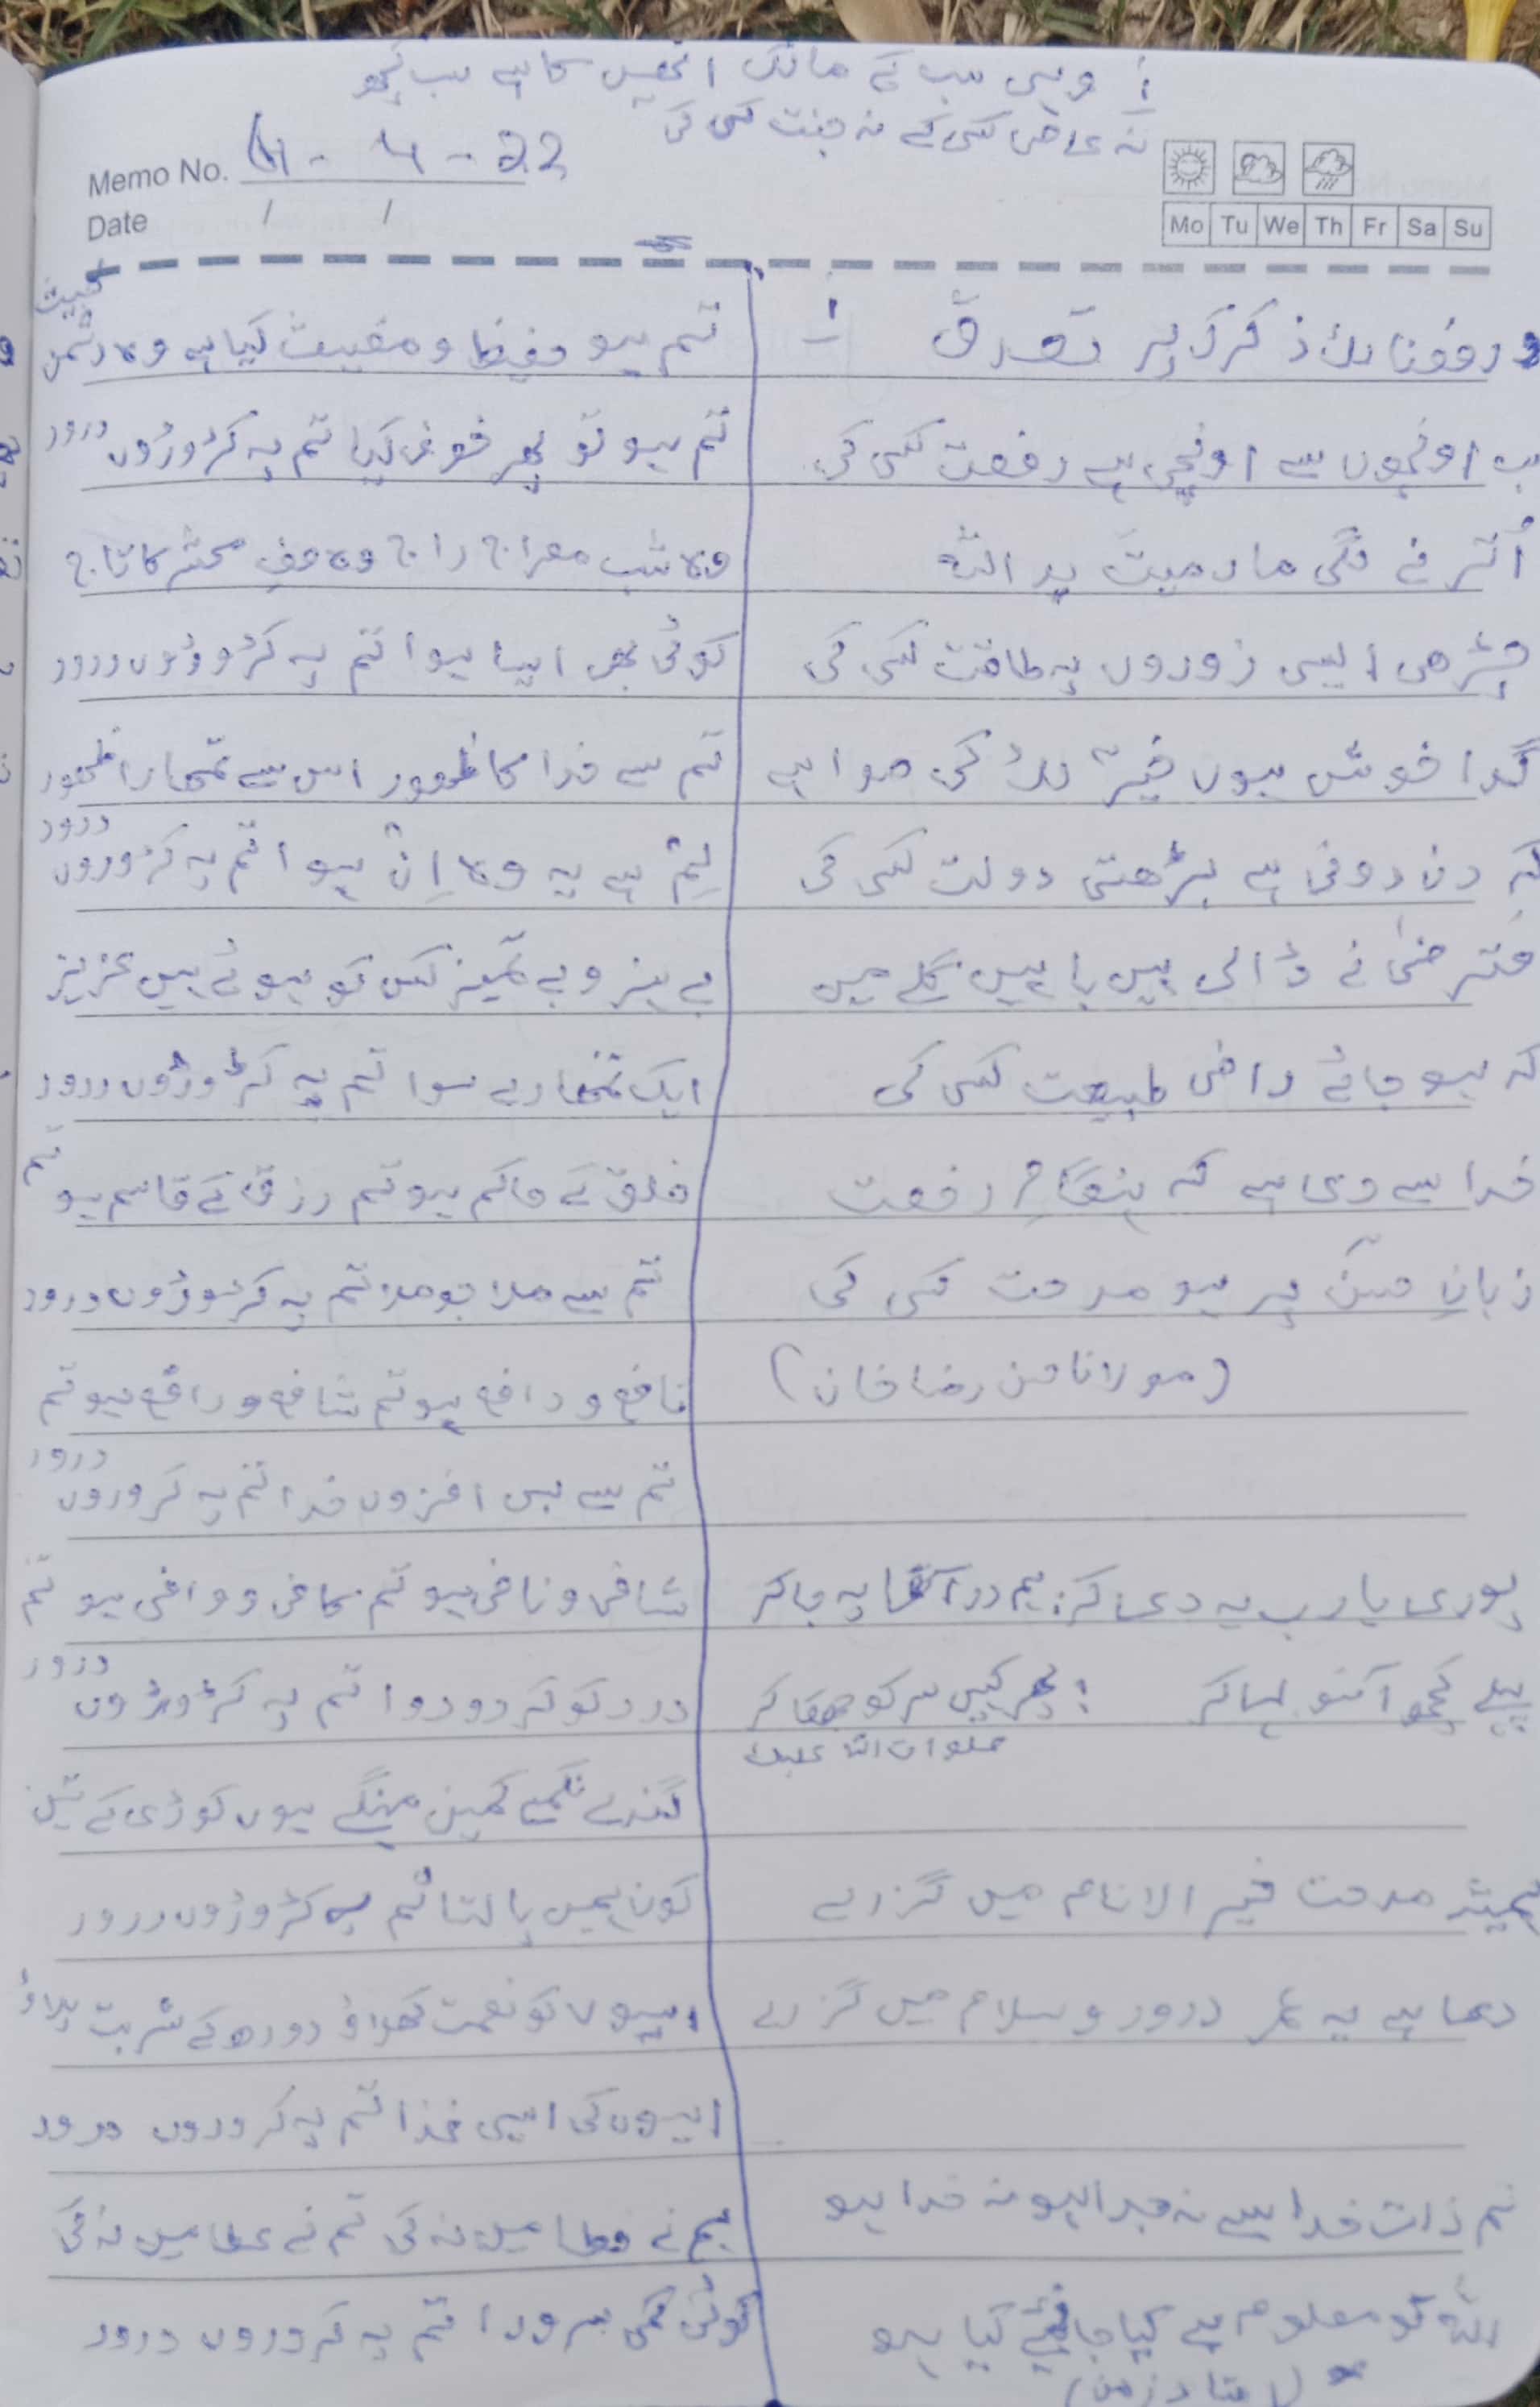 وہی سب کے مالک انھیں کا ہے سب کچھ
نہ عاصی کسی کے نہ جنت کسی کی
Memo No. 4 - 4 - 22
Date / /
Mo Tu We Th Fr Sa Su
ورفعنا لک ذکرک پر تصدق
سب اونچوں سے اونچی ہے رفعت کسی کی
اُترنے لگی ما رمیت ید اللہ
چڑھی ایسی زوروں پہ طاقت کسی کی
گدا خوش ہوں خیرٌ لک کی صدا ہے
کہ دن دونی ہے بڑھتی دولت کسی کی
فترضیٰ نے ڈالی ہیں باہیں گلے میں
کہ ہو جائے راضی طبیعت کسی کی
خدا سے دعا ہے کہ ہنگامِ رفعت
زبانِ حسن پر ہو مدحت کسی کی
(مولانا حسن رضا خان)
پوری یا رب یہ دعا کر: ہم در آقا پہ جا کر
پہلے کچھ آنسو بہا کر : پھر کہیں سر کو جھکا کر
صلوات اللہ علیک
ہمیشہ مدحت خیر الانام میں گزرے
دعا ہے یہ عمر درود و سلام میں گزرے
تم ذات خدا سے نہ جدا ہو نہ خدا ہو
اللہ کو معلوم ہے کیا جانئیے کیا ہو
تم ہو حفیظ و مغیث کیا ہے وہ دشمن خبیث
تم ہو تو پھر خوف کیا تم پہ کڑوڑوں درود
وہ شب معراج راج وہ صفِ محشر کا تاج
کوئی بھی ایسا ہوا تم پہ کڑوڑوں درود
تم سے خدا کا ظہور اس سے تمھارا ظہور
لِمْ ہے یہ وہ اِنْ ہوا تم پہ کروروں درود
بے ہنر و بے تمیز کس کو ہوئے ہیں عزیز
ایک تمھارے سوا تم پہ کڑوڑوں درود
خلق کے حاکم ہو تم رزق کے قاسم ہو تم
تم سے ملا جو ملا تم پہ کڑوڑوں درود
نافع و دافع ہو تم شافع و رافع ہو تم
تم سے بس افزوں خدا تم پہ کروروں درود
شافی و نافی ہو تم کافی و وافی ہو تم
درد کو کر دو دوا تم پہ کڑوڑوں درود
گندے نکمے کمین مہنگے ہوں کوڑی کے تین
کون ہمیں پالتا تم پہ کڑوڑوں درود
ایسوں کو نعمت کھلاؤ دودھ کے شربت پلاؤ
ایسوں کی ایسی غذا تم پہ کروروں درود
ہم نے خطا میں نہ کی تم نے عطا میں نہ کی
کوئی کمی سرورا تم پہ کروروں درود